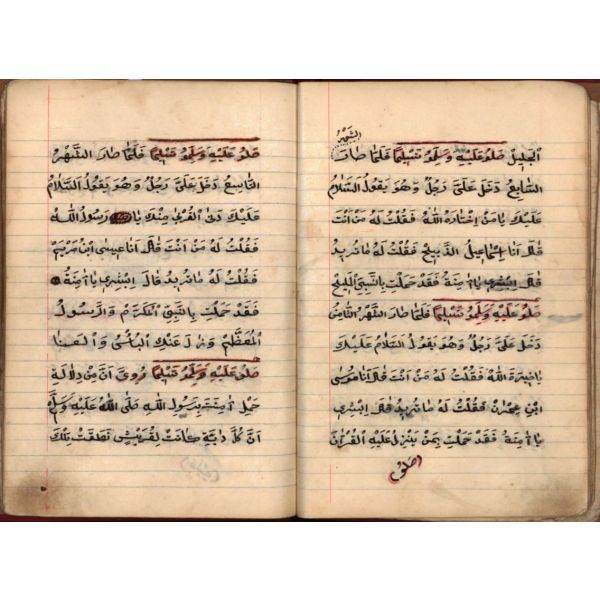 الشهر
الجليل صلو عليه وسلمو تسليما فلما صار
السابع دخل علي رجل وهو يقول السلام
عليك يا من اختاره الله فقلت له من انت
قال انا اسماعيل الذبيح فقلت له ما تريد
قال ابشري يا امنة فقد حملت بالنبي المليح
صلو عليه وسلمو تسليما فلما صار الشهر الثامن
دخل علي رجل وهو يقول السلام عليك
يا خيرة الله فقلت له من انت قال انا موسى
ابن عمران فقلت له ما تريد قال ابشري
يا امنة فقد حملت بمن ينزل عليه القرآن
صلو
صلو عليه وسلمو تسليما فلما صار الشهر
التاسع دخل علي رجل وهو يقول السلام
عليك دنى القرب منك يا رسول الله
فقلت له من انت قال انا عيسى ابن مريم
فقلت له ما تريد قال ابشري يا امنة
فقد حملت بالنبي المكرم والرسول
المعظم وزال عنك البؤس والعنا
صلو عليه وسلمو تسليما روي ان من دلالة
حمل امنة برسول الله صلى الله عليه وسلم
ان كل دابة كانت لقريش نطقت تلك